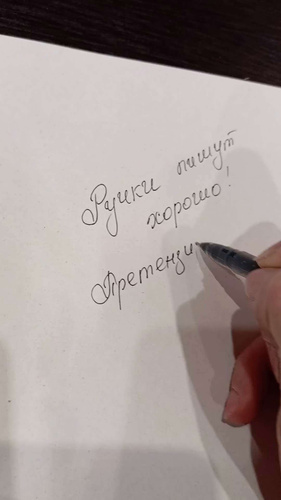 Ручки пишут
хорошо!
Претензи